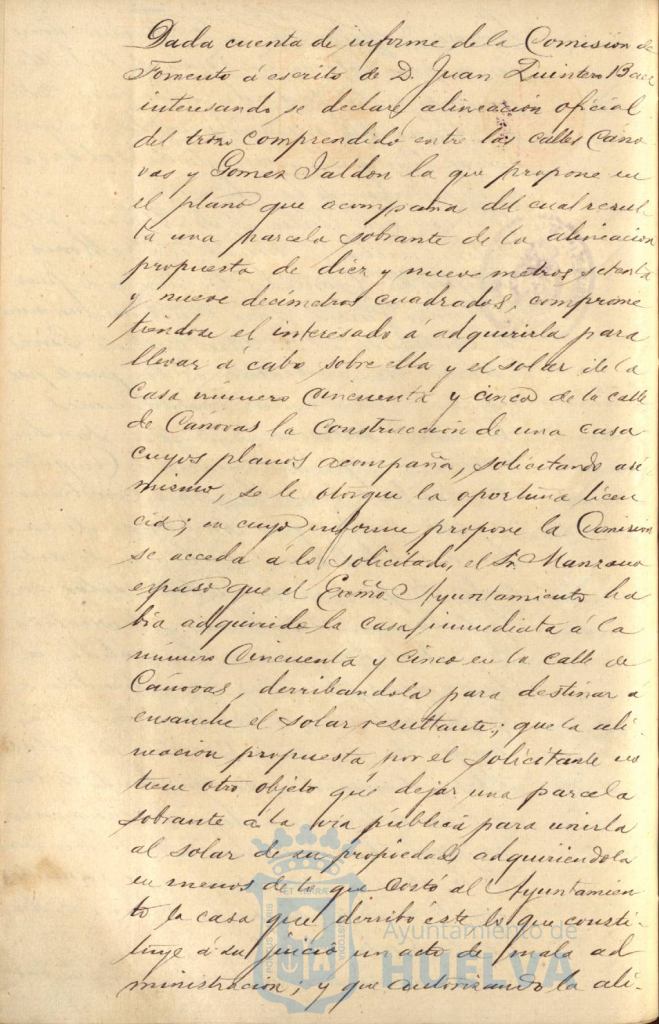 Dada cuenta de informe de la Comisión de
Fomento á escrito de D. Juan Quintero Baez
interesando se declare alineación oficial
del trozo comprendido entre las calles Cano
vas y Gomez Jaldon la que propone en
el plano que acompaña del cual resul
ta una parcela sobrante de la alineacion
propuesta de diez y nueve metros setenta
y nueve decímetros cuadrados, comprome
tiéndose el interesado á adquirirla para
llevar á cabo sobre ella y el solar de la
casa número cincuenta y cinco de la calle
de Cánovas la construcción de una casa
cuyos planos acompaña, solicitando asi
mismo, se le otorgue la oportuna licen
cia; en cuyo informe propone la Comision
se acceda á lo solicitado, el Sr. Manzano
expuso que el Excmo. Ayuntamiento ha
bia adquirido la casa inmediata á la
número cincuenta y cinco en la calle de
Cánovas, derribandola para destinar á
ensanche el solar resultante; que la ali
neacion propuesta por el solicitante no
tiene otro objeto que dejar una parcela
sobrante a la via pública para unirla
al solar de su propiedad adquiriendola
en menos de lo que costó al Ayuntamien
to la casa que derribó éste lo que consti
tuye á su juicio un acto de mala ad
ministración; y que autorizando la ali-
Ayuntamiento de
HUELVA